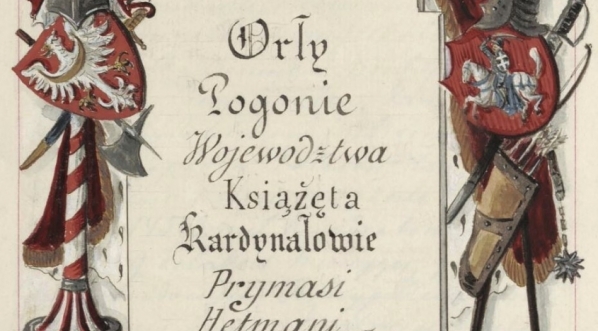 Orły
Pogonie
Województwa
Książęta
Kardynałowie
Prymasi
Hetmani